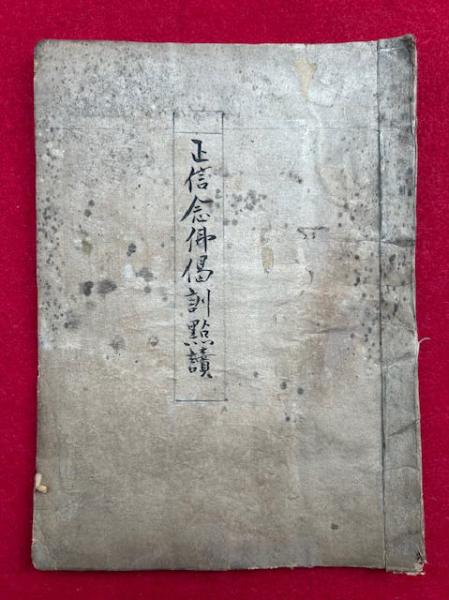 正信念佛偈訓點讀